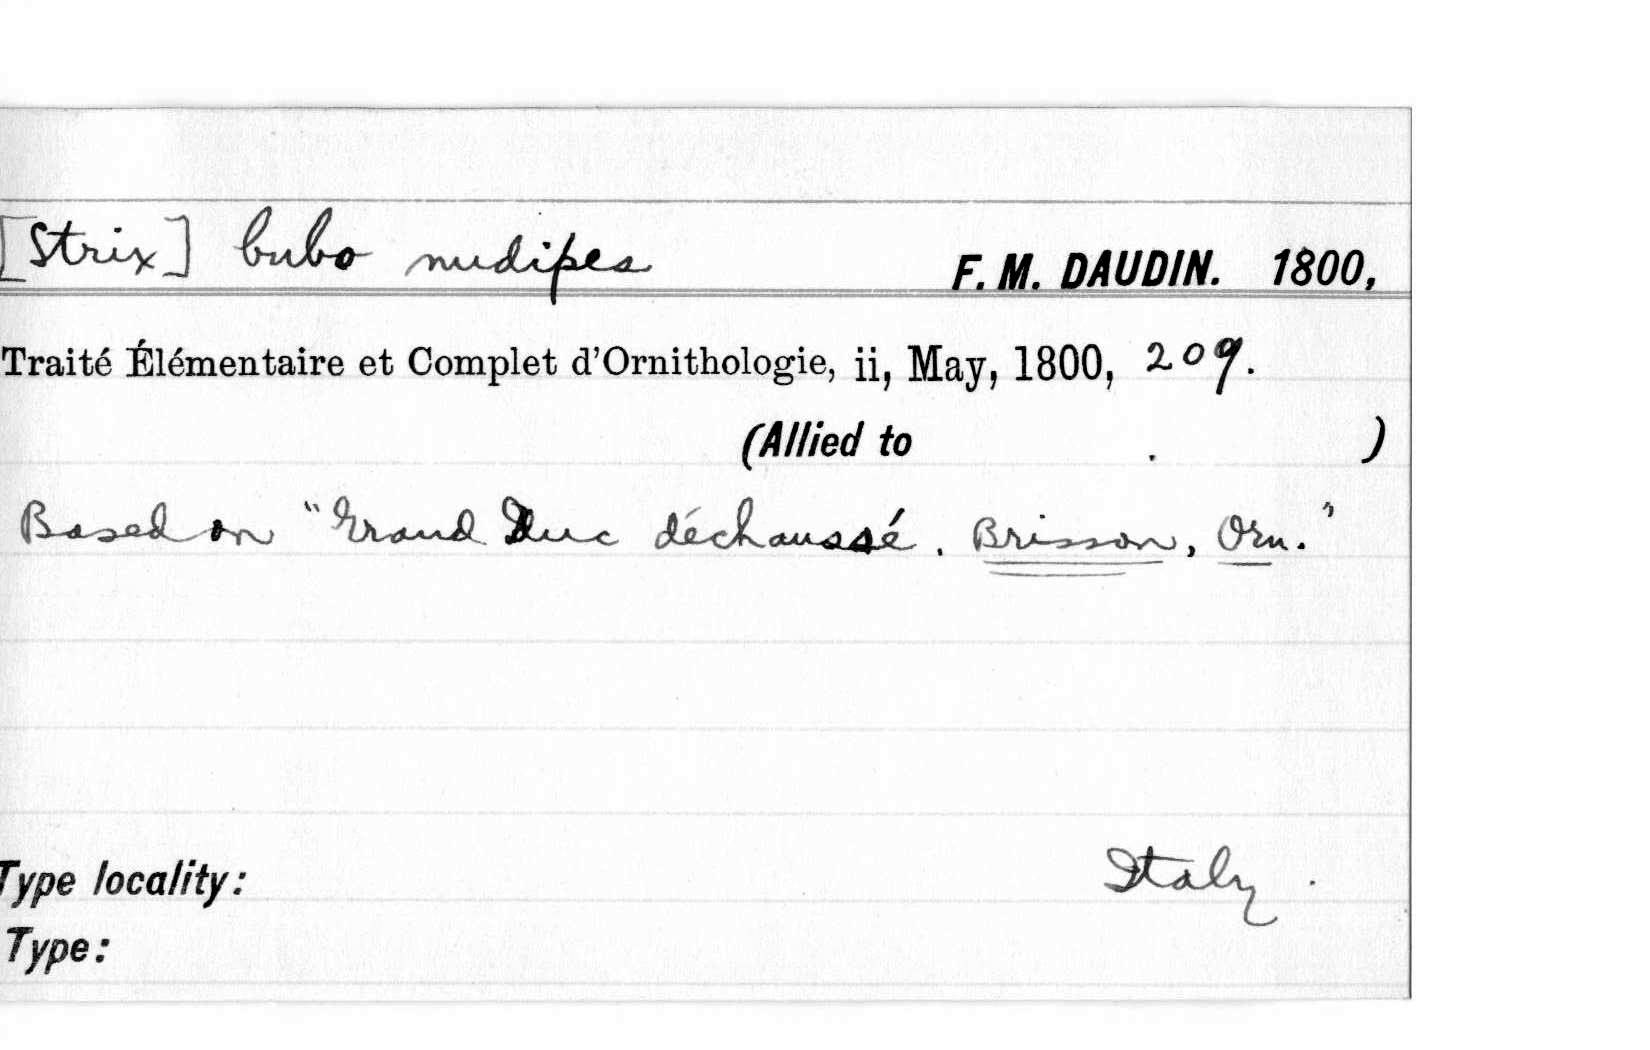 [Strix] bubo nudipes F. M. DAUDIN. 1800,
Traité Élémentaire et Complet d'Ornithologie, ii, May, 1800, 209.
(Allied to . )
Based on "Grand Duc déchaussé. Brisson, Orn."
Type locality: Italy.
Type: